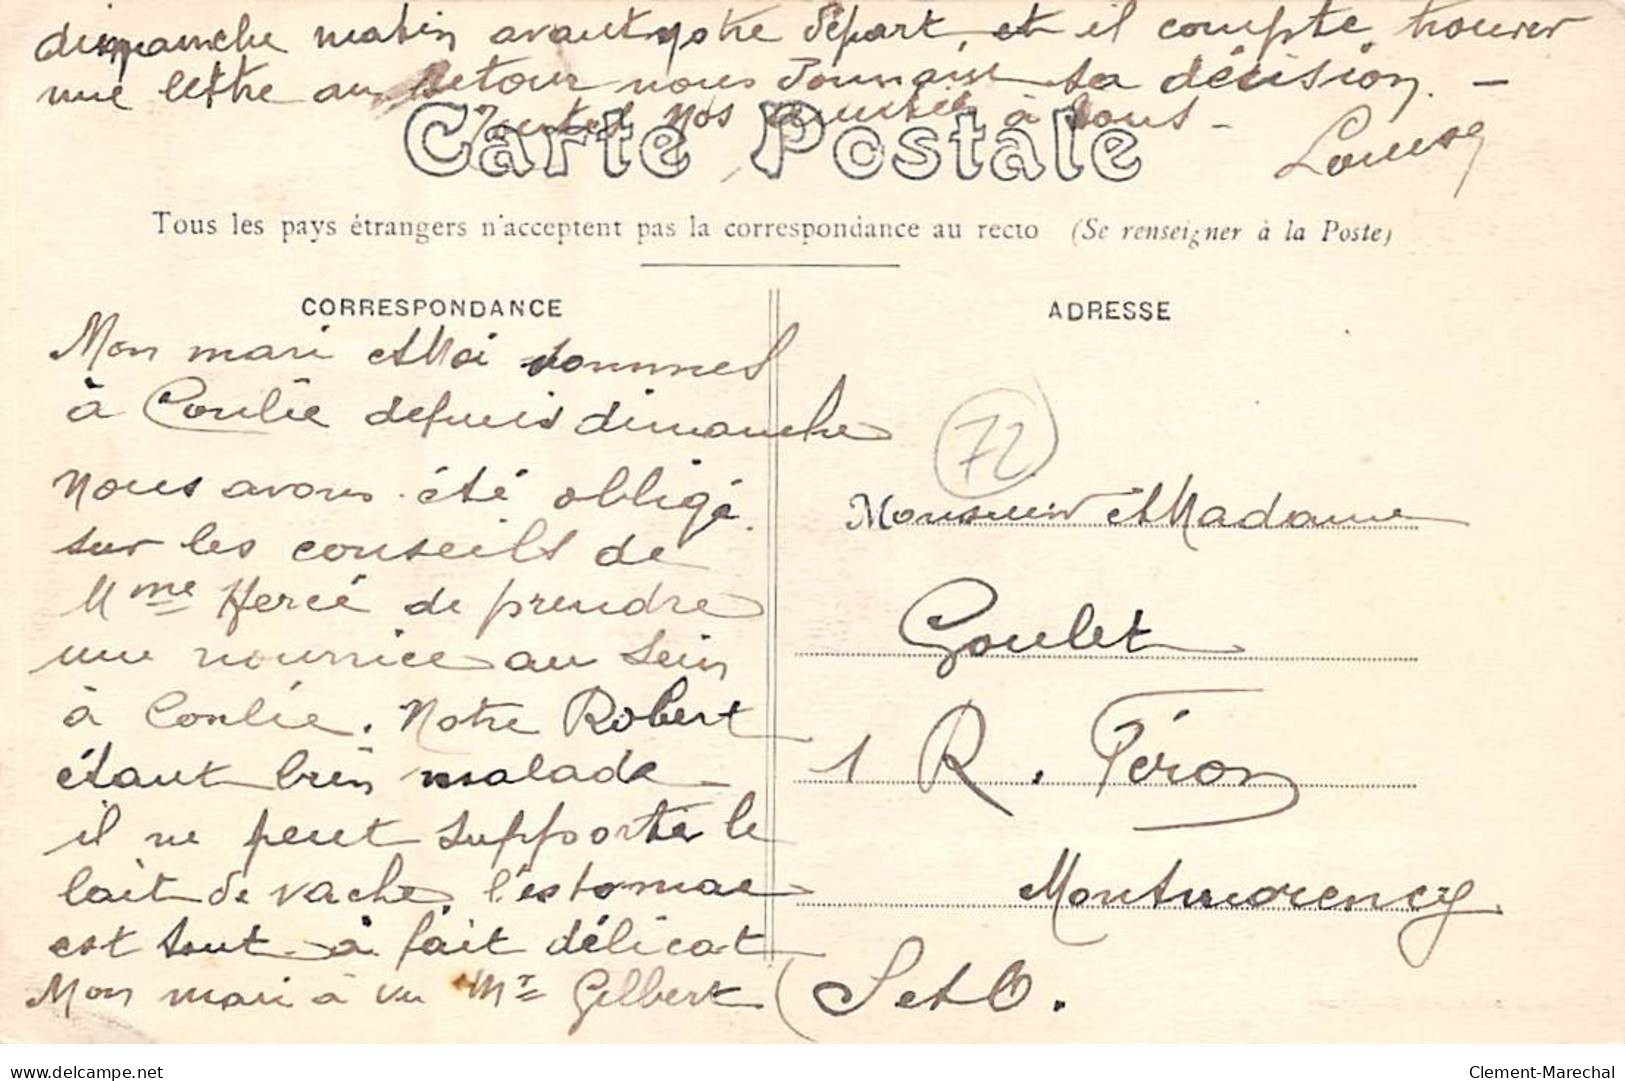 dimanche matin avant votre départ, et il compte trouver
une lettre au retour nous donnant sa décision. —
Toutes nos amitiés à vous -
Louise
Carte Postale
Tous les pays étrangers n'acceptent pas la correspondance au recto (Se renseigner à la Poste)
CORRESPONDANCE
Mon mari et Moi sommes
à Conlie depuis dimanche
nous avons été obligé
sur les conseils de
Mme Hercé de prendre
une nourrice au sein
à Conlie. Notre Robert
étant bien malade
il ne peut supporter le
lait de vache, l'estomac
est tout à fait délicat
Mon mari à vu Mr Gilbert
ADRESSE
72
Monsieur et Madame
Goulet
1 R. Féron
Montmorency
S et O.
delcampe.net
Clement-Marechal